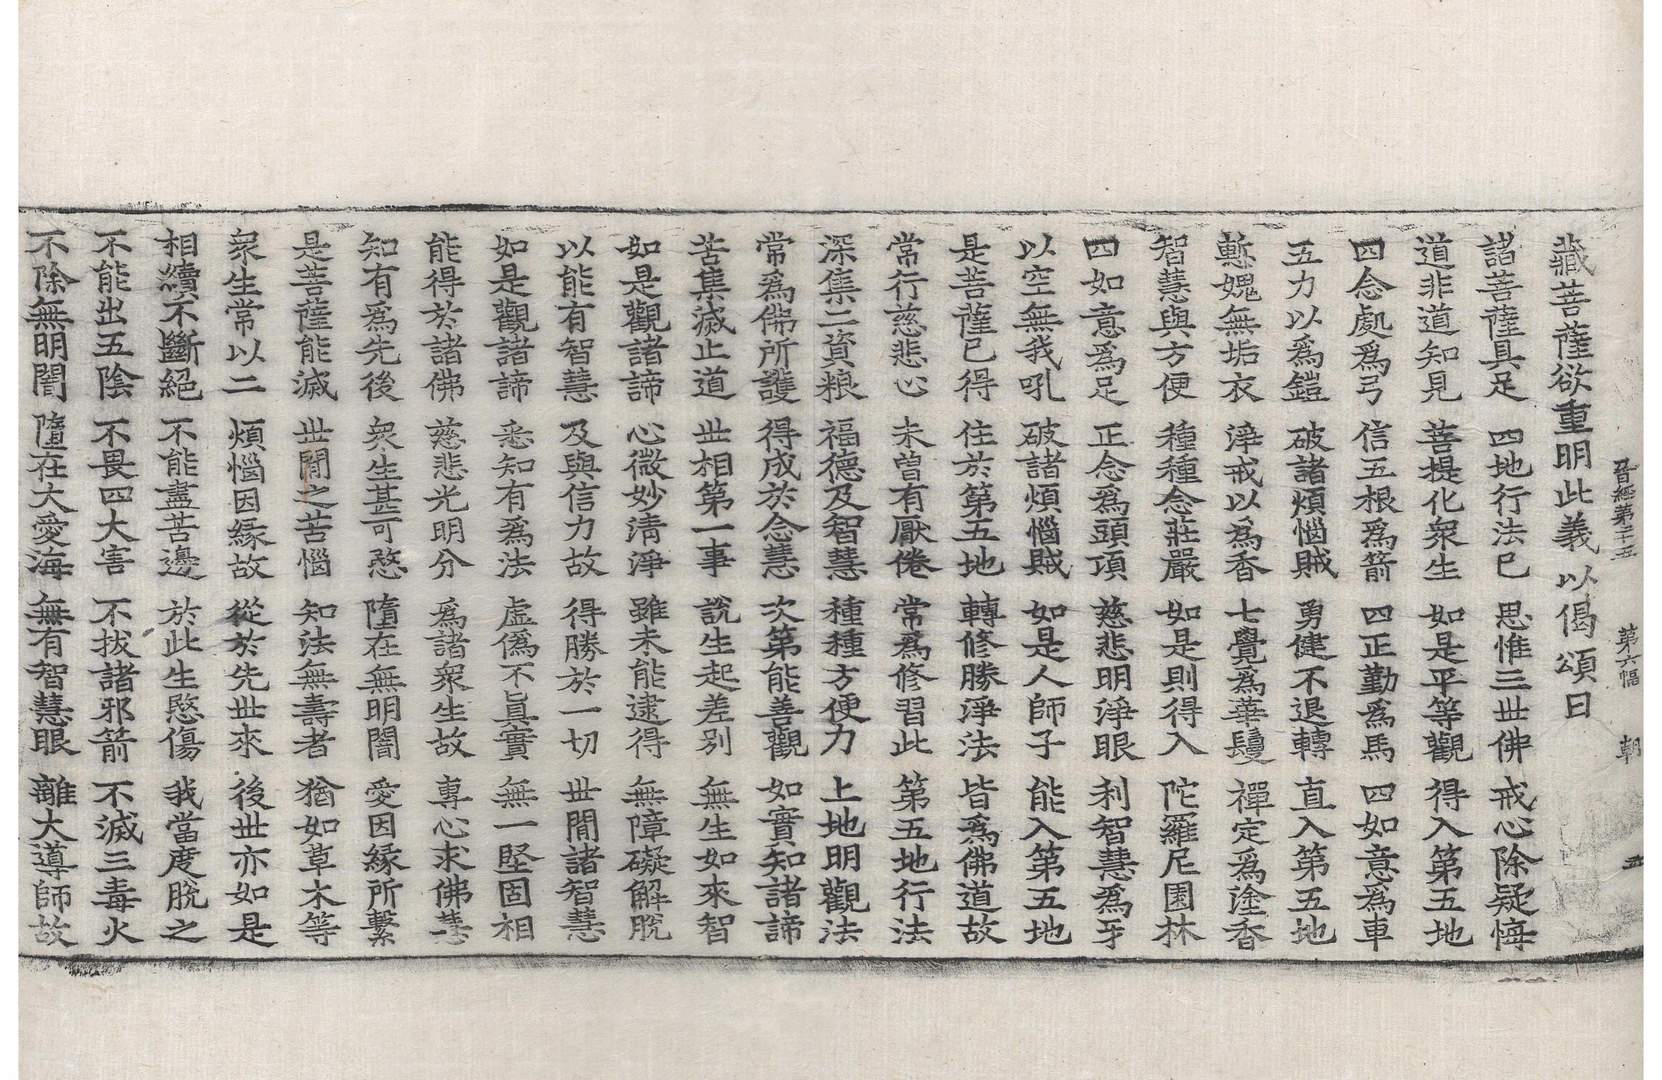 晉經第二十五　第六幅　朝　五
藏菩薩欲重明此義以偈頌曰
諸菩薩具足　四地行法已　思惟三世佛　戒心除疑悔
道非道知見　菩提化衆生　如是平等觀　得入第五地
四念處爲弓　信五根爲箭　四正勤爲馬　四如意爲車
五力以爲鎧　破諸煩惱賊　勇健不退轉　直入第五地
慙媿無垢衣　淨戒以爲香　七覺爲華鬘　禪定爲塗香
智慧與方便　種種念莊嚴　如是則得入　陀羅尼園林
四如意爲足　正念爲頭頂　慈悲明淨眼　利智慧爲牙
以空無我吼　破諸煩惱賊　如是人師子　能入第五地
是菩薩已得　住於第五地　轉修勝淨法　皆爲佛道故
常行慈悲心　未曾有厭倦　常爲修習此　第五地行法
深集二資粮　福德及智慧　種種方便力　上地明觀法
常爲佛所護　得成於念慧　次第能善觀　如實知諸諦
苦集滅止道　世相第一事　說生起差別　無生如來智
如是觀諸諦　心微妙清淨　雖未能逮得　無障礙解脫
以能有智慧　及與信力故　得勝於一切　世閒諸智慧
如是觀諸諦　悉知有爲法　虛僞不眞實　無一堅固相
能得於諸佛　慈悲光明分　爲諸衆生故　專心求佛慧
知有爲先後　衆生甚可愍　墮在無明闇　愛因緣所繫
是菩薩能滅　世閒之苦惱　知法無壽者　猶如草木等
衆生常以二　煩惱因緣故　從於先世來　後世亦如是
相續不斷絕　不能盡苦邊　於此生愍傷　我當度脫之
不能出五陰　不畏四大害　不拔諸邪箭　不滅三毒火
不除無明闇　墮在大愛海　無有智慧眼　離大導師故